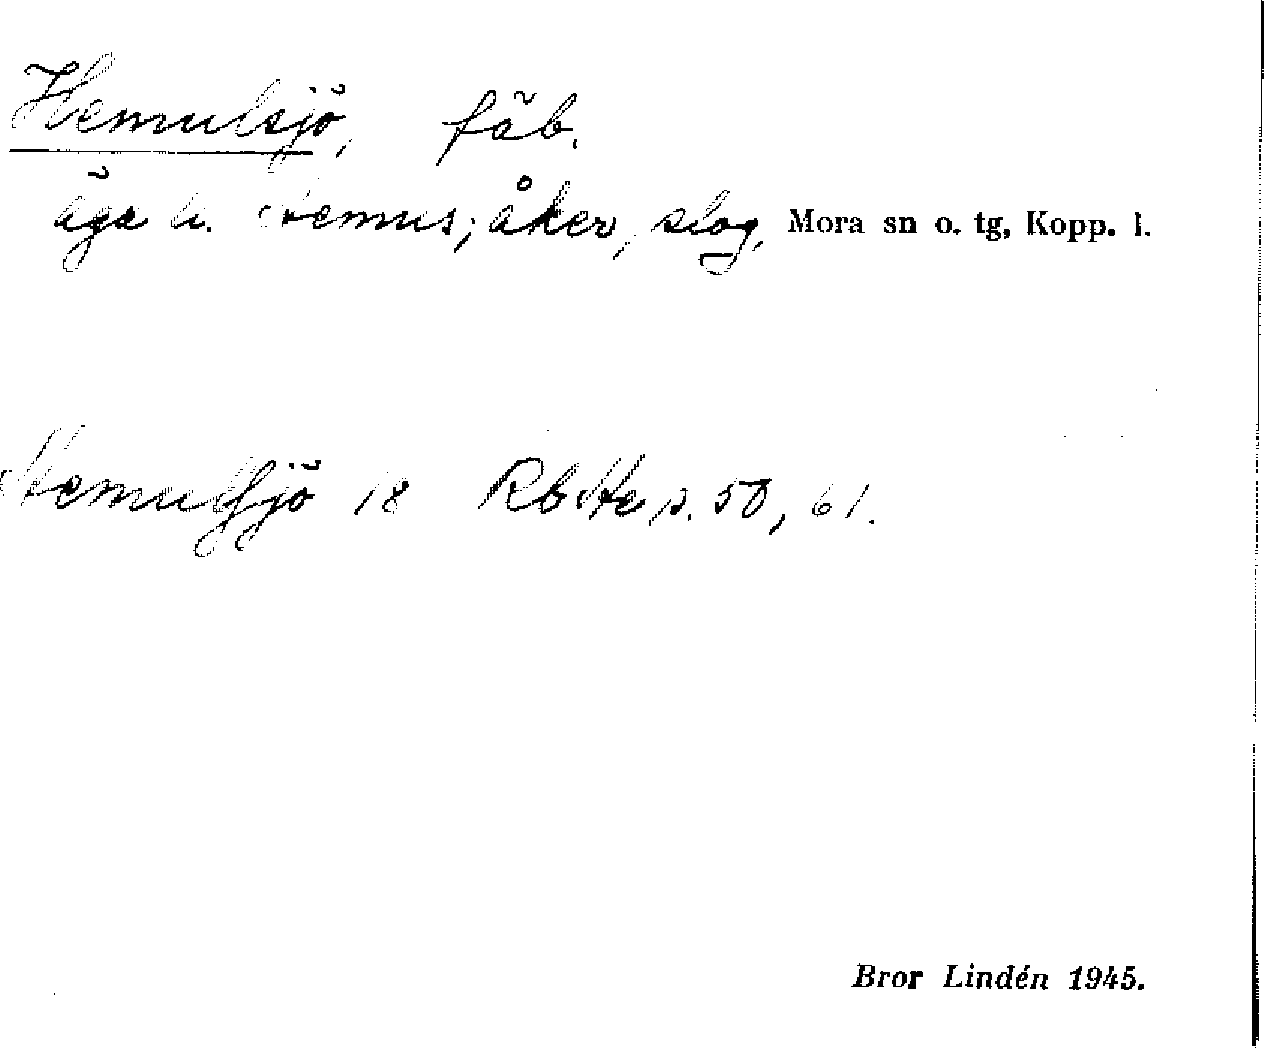 Hemulsjö, fäb.
äga h. Hemus; åker, slog, Mora sn o. tg, Kopp. l.
Hemulsjö 18 RbHe s. 58, 61.
Bror Lindén 1945.